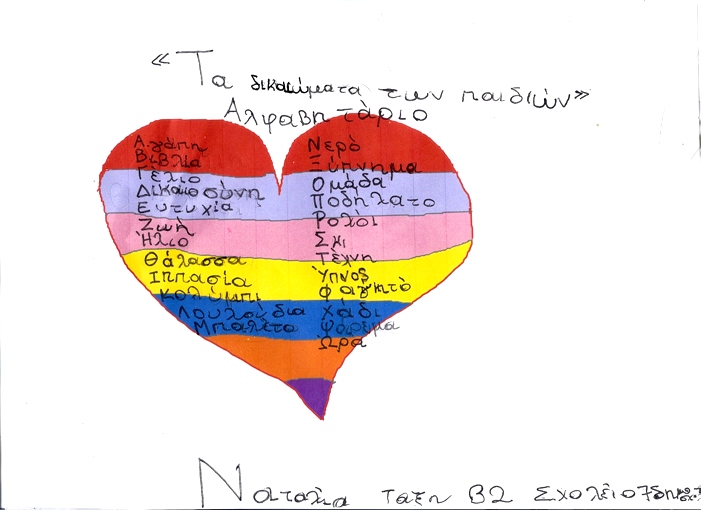 «Τα δικαιώματα των παιδιών»
Αλφαβητάριο
Αγάπη
Βιβλία
Γέλιο
Δικαιοσύνη
Ευτυχία
Ζωή
Ήλιο
Θάλασσα
Ιππασία
Κολύμπι
Λουλούδια
Μπαλέτο
Νερό
Ξύπνημα
Ομάδα
Ποδήλατο
Ρολόι
Σκι
Τέχνη
Ύπνος
Φαγητό
Χάδι
Ψάρεμα
Ώρα
Ναταλία ταξη Β2 Σχολείο 7